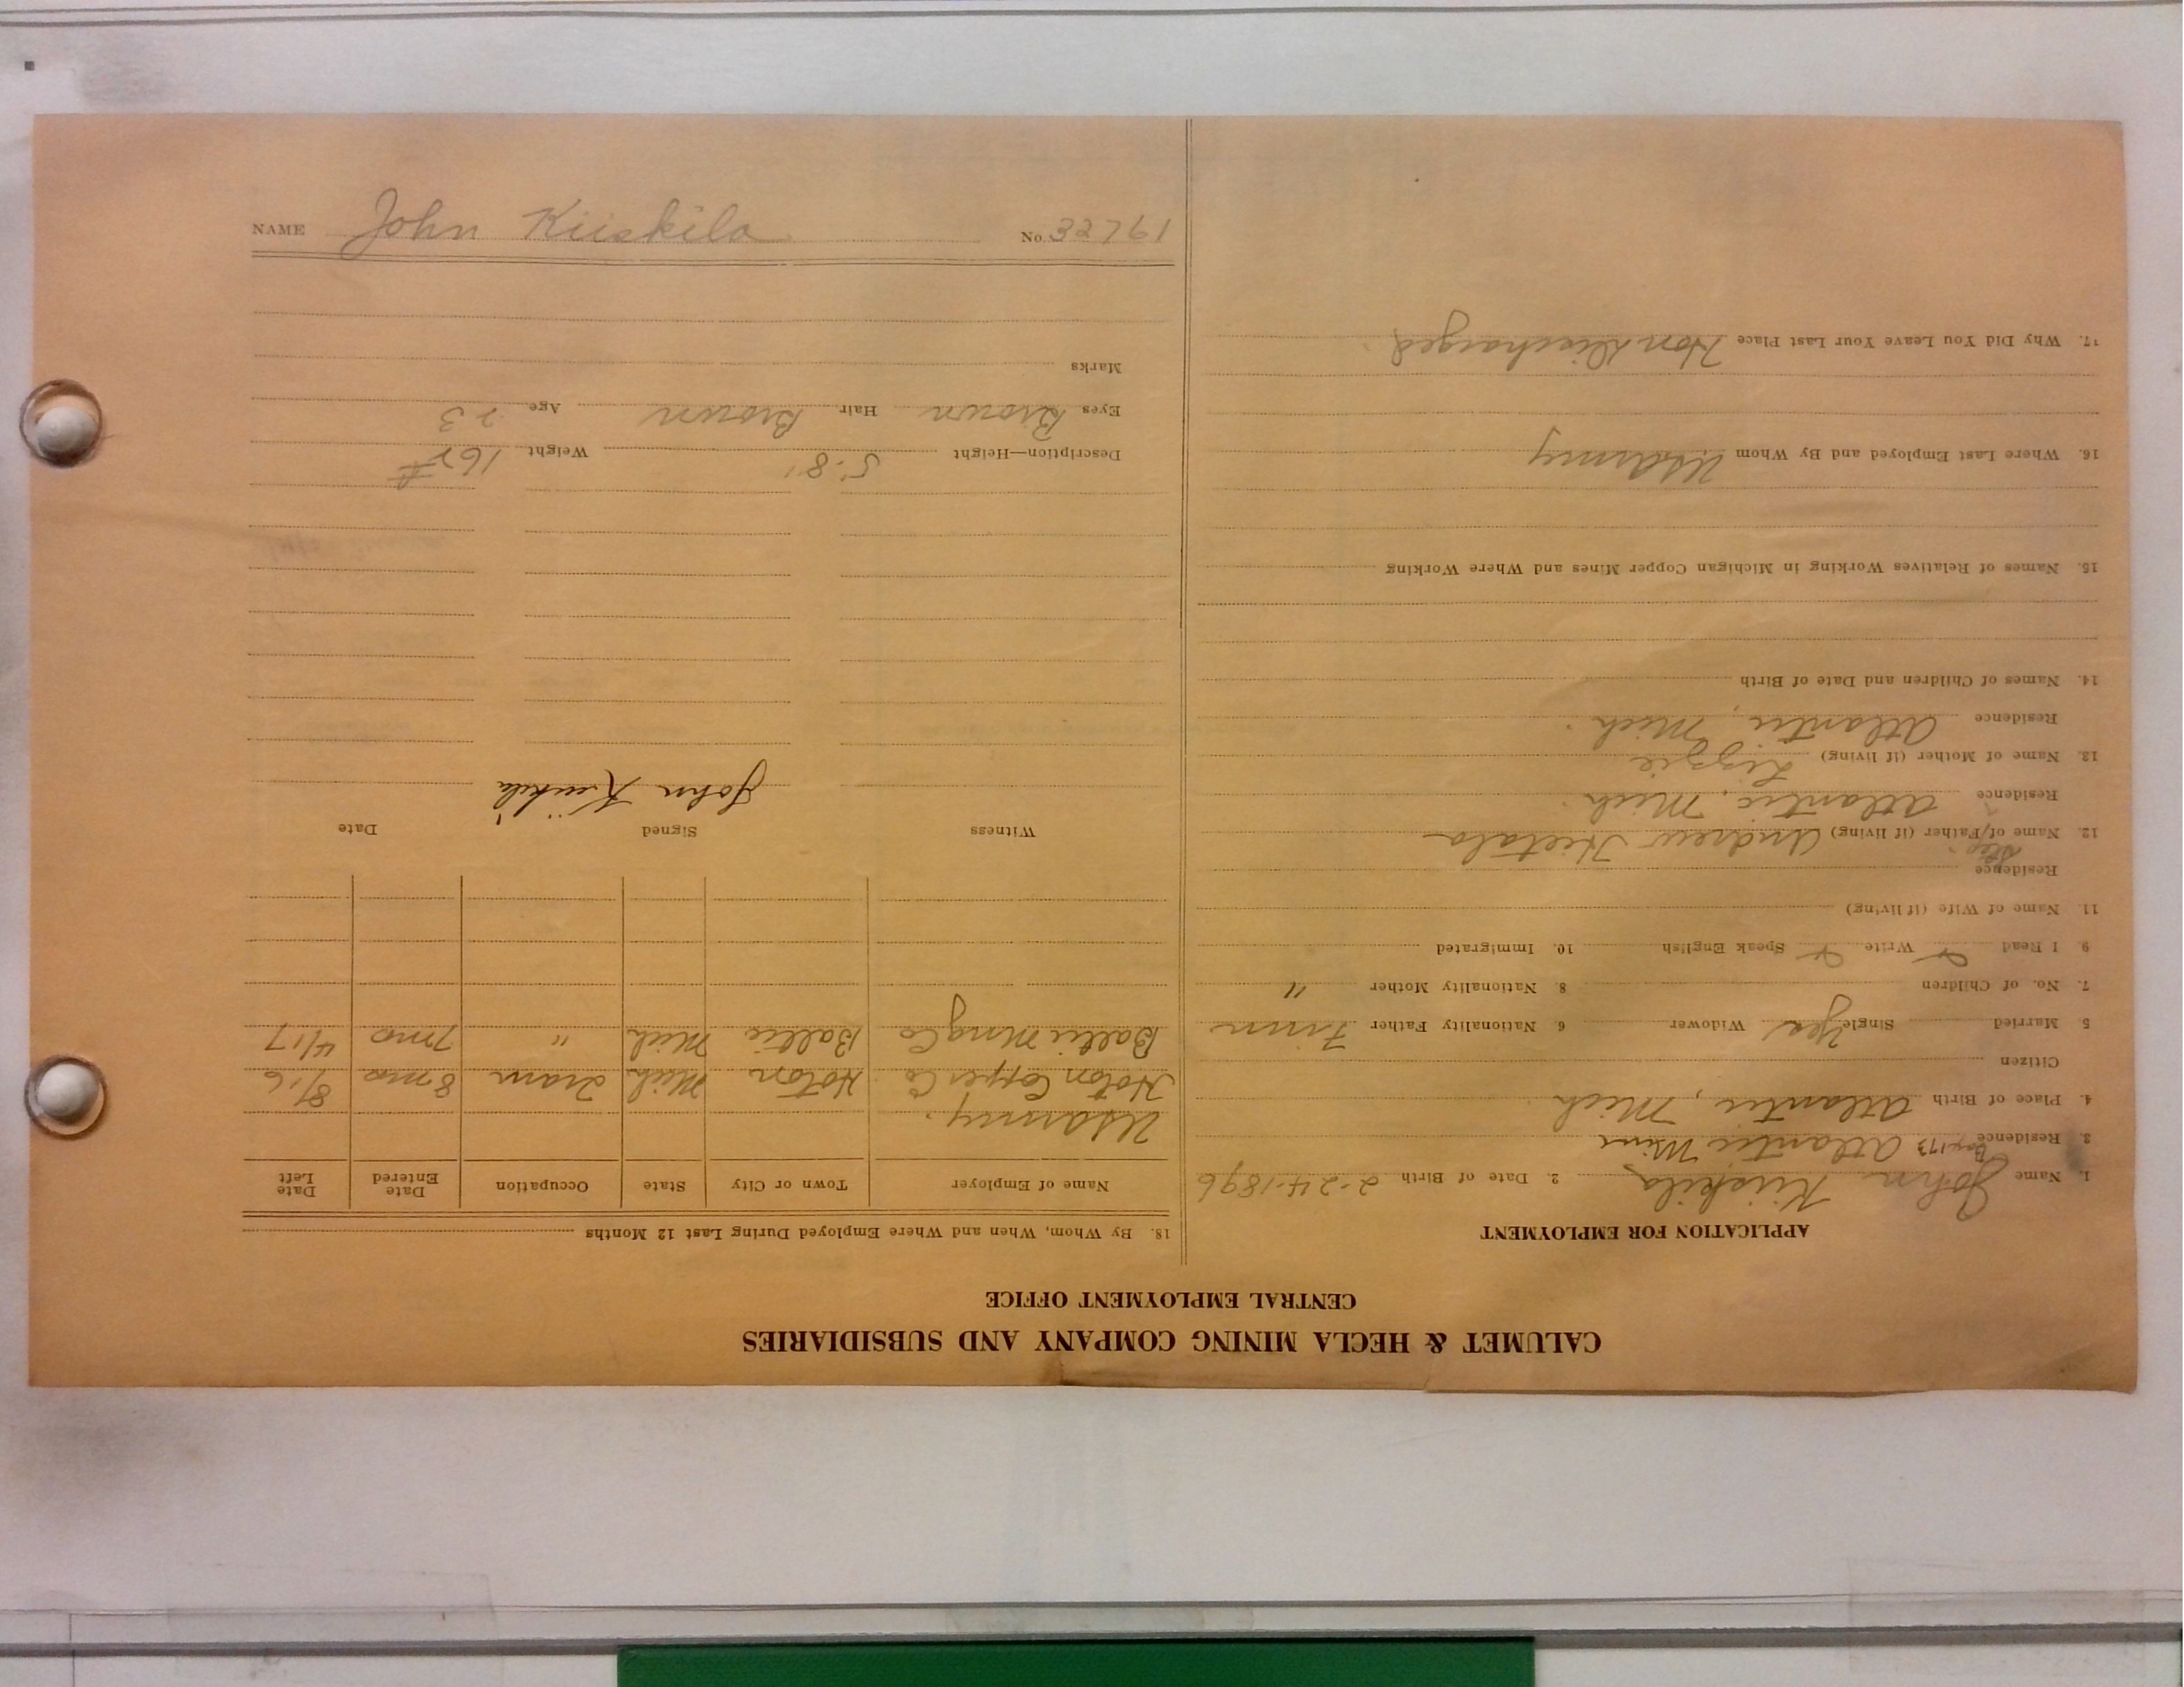 CALUMET & HECLA MINING COMPANY AND SUBSIDIARIES
CENTRAL EMPLOYMENT OFFICE
APPLICATION FOR EMPLOYMENT
1. Name John Kiiskila 2. Date of Birth 2-24-1896
3. Residence Box 173 Atlantic Mine
4. Place of Birth Atlantic, Mich
Citizen
5. Married Single Yes Widower 6. Nationality Father Finn
7. No. of Children 8. Nationality Mother "
9. I Read Write Speak English 10. Immigrated
11. Name of Wife (if living)
Residence
Step
12. Name of/Father (if living) Andrew Hietala
Residence Atlantic, Mich.
13. Name of Mother (if living) Lizzie
Residence Atlantic, Mich.
14. Names of Children and Date of Birth
15. Names of Relatives Working in Michigan Copper Mines and Where Working
16. Where Last Employed and By Whom USArmy
17. Why Did You Leave Your Last Place Hon Discharged.
18. By Whom, When and Where Employed During Last 12 Months
Name of Employer Town or City State Occupation Date Entered Date Left
USArmy.
Hoton Copper Co Hoton Mich Tram 8 mo 8/16
Baltic Mng Co Baltic Mich " 7 mo 4/17
Witness Signed Date
John Kiiskila
Description—Height 5-8" Weight
Eyes Brown Hair Brown Age 23
Marks
NAME John Kiiskila No. 32761